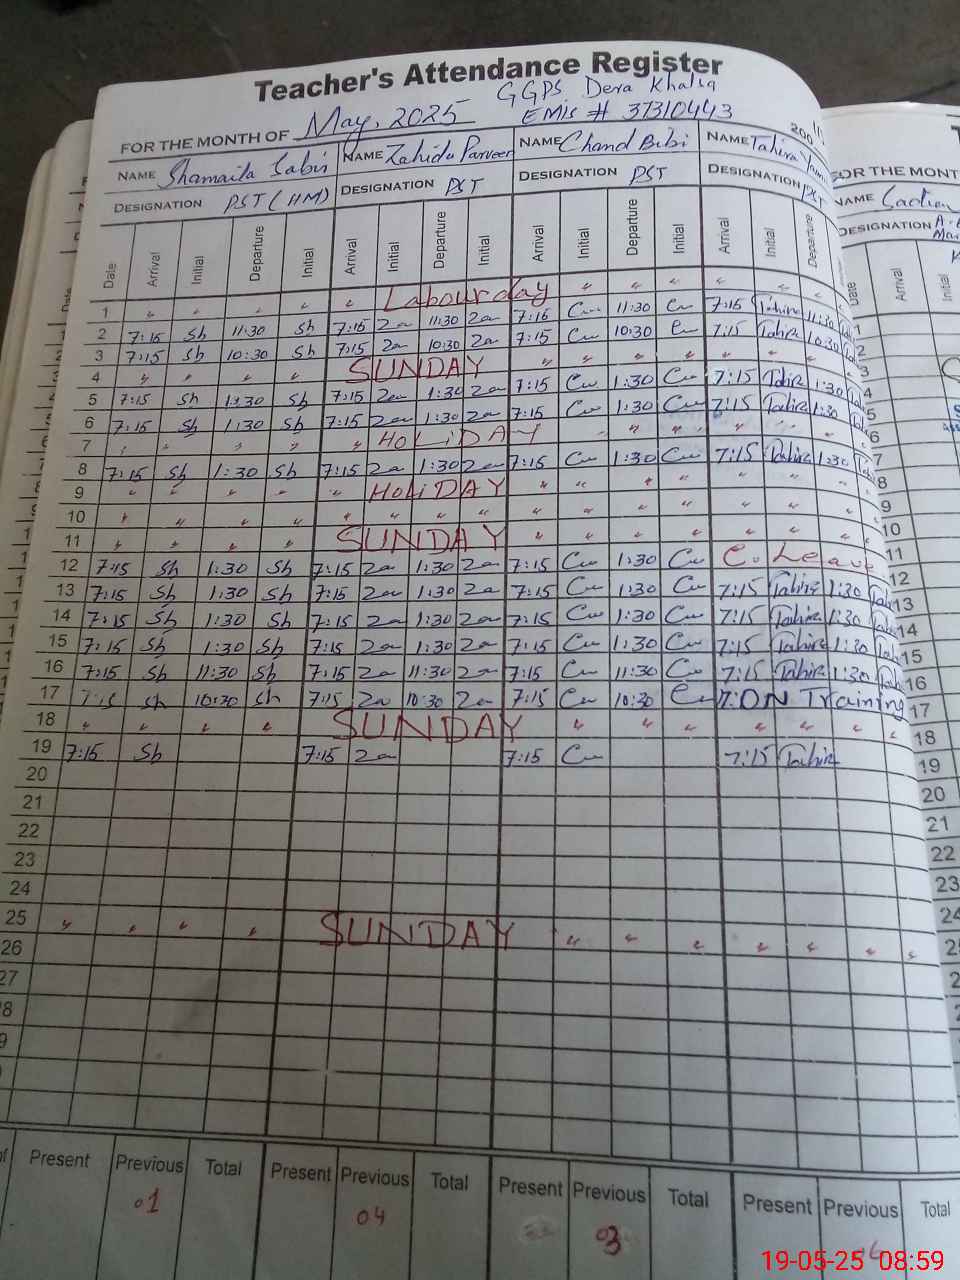 Teacher's Attendance Register
GGPS Dera Khaliq
FOR THE MONTH OF May, 2025 EMIS # 37310443
200
NAME Shamaila Sabir NAME Zahida Parveen NAME Chand Bibi NAME Tahira
DESIGNATION PST (HM) DESIGNATION PST DESIGNATION PST DESIGNATION PST
Date Arrival Initial Departure Initial Arrival Initial Departure Initial Arrival Initial Departure Initial Arrival Initial Departure
1 " " " " " Labour day " " " " " " "
2 7:15 Sh 11:30 Sh 7:15 Za 11:30 Za 7:15 Cu 11:30 Cu 7:15 Tahira 11:30
3 7:15 Sh 10:30 Sh 7:15 Za 10:30 Za 7:15 Cu 10:30 Cu 7:15 Tahira 10:30
4 " " " " SUNDAY " " " " " " "
5 7:15 Sh 1:30 Sh 7:15 Za 1:30 Za 7:15 Cu 1:30 Cu 7:15 Tahir 1:30
6 7:15 Sh 1:30 Sh 7:15 Za 1:30 Za 7:15 Cu 1:30 Cu 7:15 Tahira 1:30
7 " " " " " HOLIDAY " " " " " " "
8 7:15 Sh 1:30 Sh 7:15 Za 1:30 Za 7:15 Cu 1:30 Cu 7:15 Tahira 1:30
9 " " " " " HOLIDAY " " " " " " "
10 " " " " " " " " " " " " " " "
11 " " " " SUNDAY " " " " " " "
12 7:15 Sh 1:30 Sh 7:15 Za 1:30 Za 7:15 Cu 1:30 Cu C. Leave
13 7:15 Sh 1:30 Sh 7:15 Za 1:30 Za 7:15 Cu 1:30 Cu 7:15 Tahira 1:30
14 7:15 Sh 1:30 Sh 7:15 Za 1:30 Za 7:15 Cu 1:30 Cu 7:15 Tahira 1:30
15 7:15 Sh 1:30 Sh 7:15 Za 1:30 Za 7:15 Cu 1:30 Cu 7:15 Tahira 1:30
16 7:15 Sh 11:30 Sh 7:15 Za 11:30 Za 7:15 Cu 11:30 Cu 7:15 Tahira 1:30
17 7:15 Sh 10:30 Sh 7:15 Za 10:30 Za 7:15 Cu 10:30 Cu 7: ON Training
18 " " " " SUNDAY " " " " " " "
19 7:15 Sh 7:15 Za 7:15 Cu 7:15 Tahir
20
21
22
23
24
25 " " " " SUNDAY " " " " " " "
26
27
Present Previous Total Present Previous Total Present Previous Total Present Previous Total
01 04 03
FOR THE MONTH
NAME
DESIGNATION
Date Arrival Initial
12
13
14
15
16
17
18
19
20
21
22
23
24
19-05-25 08:59